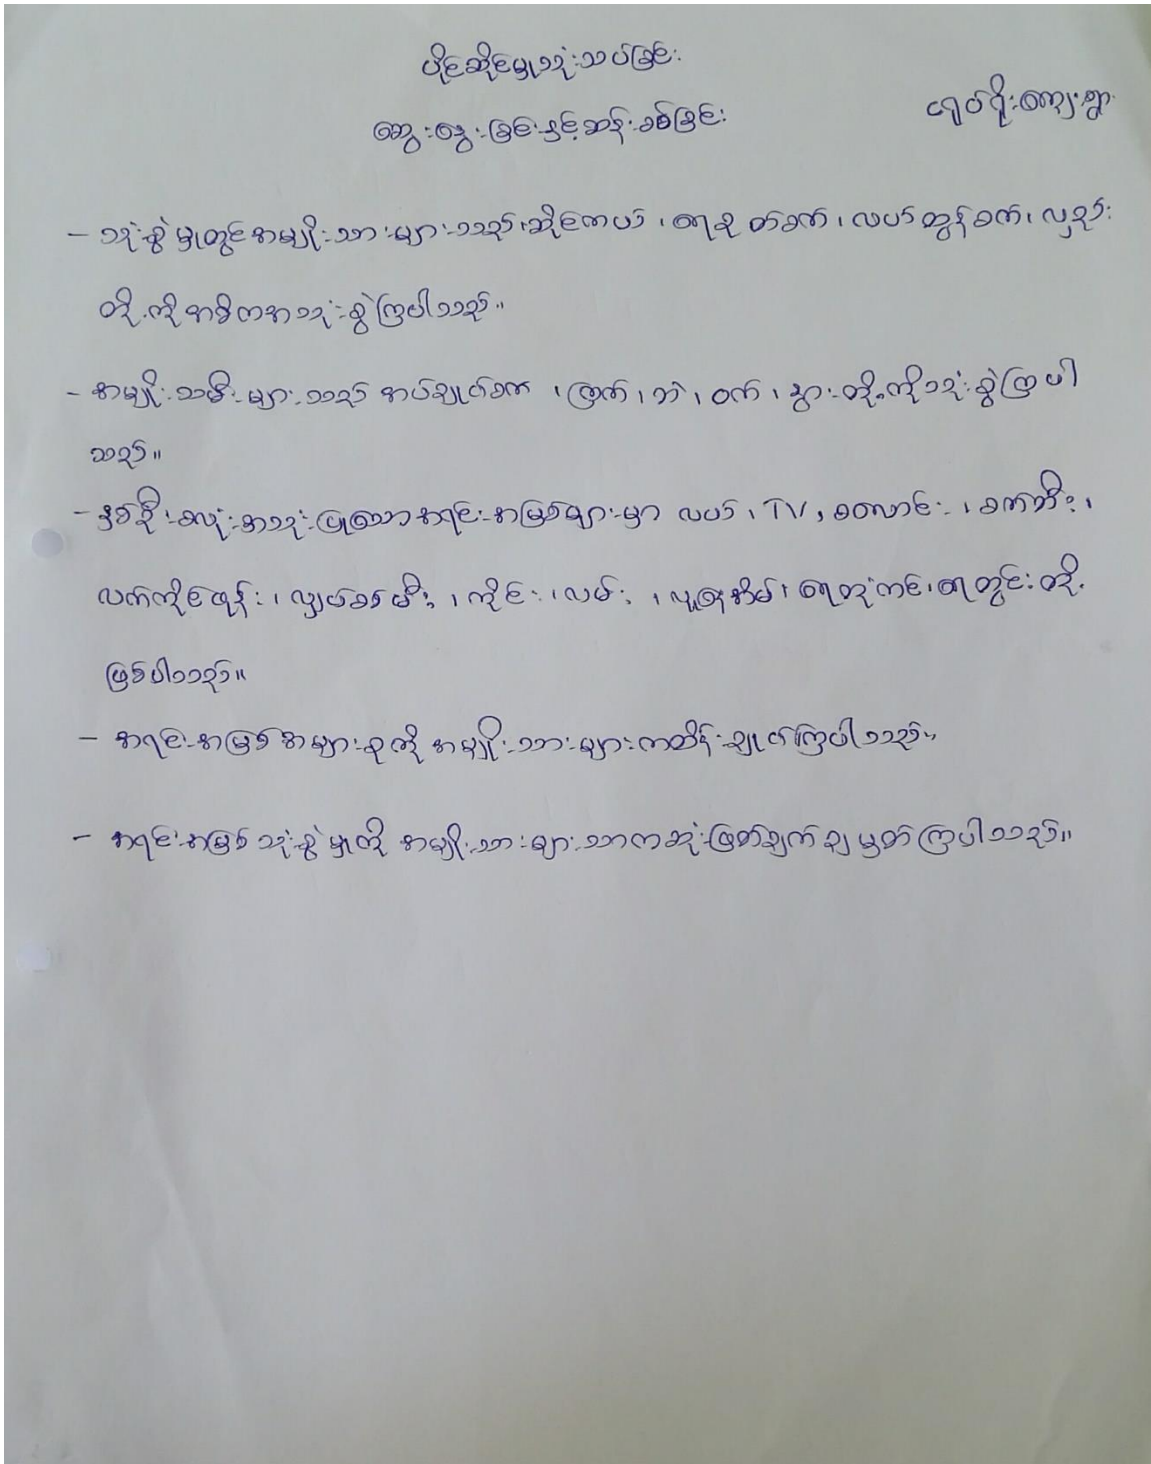 ပိုင်ဆိုင်မှုသုံးသပ်ခြင်း
ဆွေးနွေးခြင်းနှင့်ဆန်းစစ်ခြင်း
ငှုပ်ရိုးကျေးရွာ
- သုံးစွဲမှုတွင်အမျိုးသားများသည်၊ဆိုင်ကယ်၊ရေစုတ်စက်၊လယ်ထွန်စက်၊လှည်း
တို့ကိုအဓိကအသုံးစွဲကြပါသည်။
- အမျိုးသမီးများသည် အပ်ချုပ်စက်၊ကြက်၊ဘဲ၊ဝက်၊နွားတို့ကိုသုံးစွဲကြပါ
သည်။
- နှစ်ဦးစလုံးအသုံးပြုသောအရင်းအမြစ်များမှာ လယ်၊TV,စလောင်း၊စက်ဘီး၊
လက်ကိုင်ဖုန်း၊လျှပ်စစ်မီး၊ကိုင်း၊လမ်း၊လူနေအိမ်၊ရေတုံကင်၊ရေတွင်းတို့
ဖြစ်ပါသည်။
- အရင်းအမြစ်အများစုကို အမျိုးသားများကထိန်းချုပ်ကြပါသည်။
- အရင်းအမြစ်သုံးစွဲမှုကို အမျိုးသားများသာကဆုံးဖြတ်ချက်ချမှတ်ကြပါသည်။